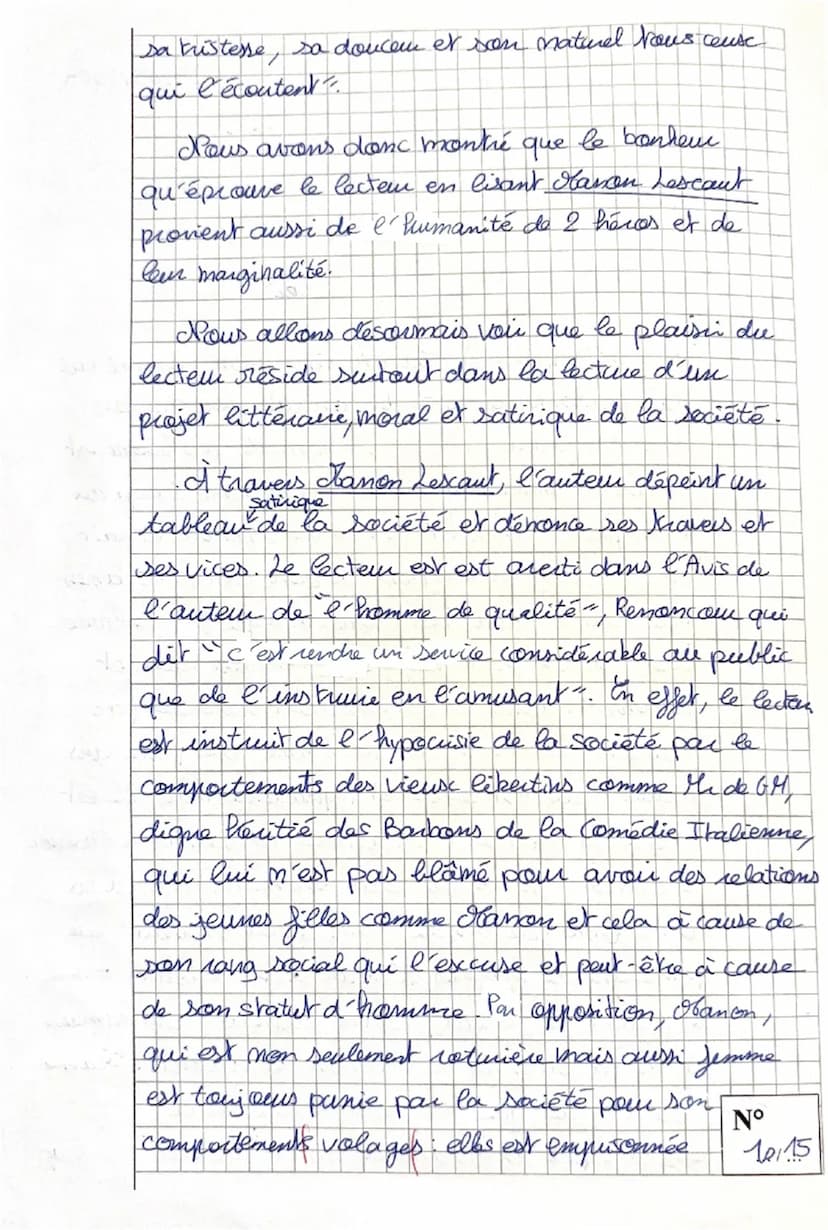 sa tristesse, sa douceur et son naturel tous ceux
qui l'écoutent".
Nous avons donc montré que le bonheur
qu'éprouve le lecteur en lisant Manon Lescaut
provient aussi de l'humanité de 2 héros et de
leur marginalité.
Nous allons désormais voir que le plaisir du
lecteur réside surtout dans la lecture d'un
projet littéraire, moral et satirique de la société.
À travers Manon Lescaut, l'auteur dépeint un
satirique
tableau de la société et dénonce ses travers et
ses vices. Le lecteur est est averti dans l'Avis de
l'auteur de "l'homme de qualité", Renoncour qui
dit "c'est rendre un service considérable au public
que de l'instruire en l'amusant". En effet, le lecteur
est instruit de l'hypocrisie de la société par le
comportements des vieux libertins comme Mr de GM,
digne héritié des Barbons de la Comédie Italienne,
qui lui n'est pas blâmé pour avoir des relations
des jeunes filles comme Manon et cela à cause de
son rang social qui l'excuse et peut-être à cause
de son statut d'homme. Par opposition, Manon,
qui est non seulement roturière mais aussi femme
est toujours punie par la société pour son
comportements volages : elles est emprisonnée
N°
10/15